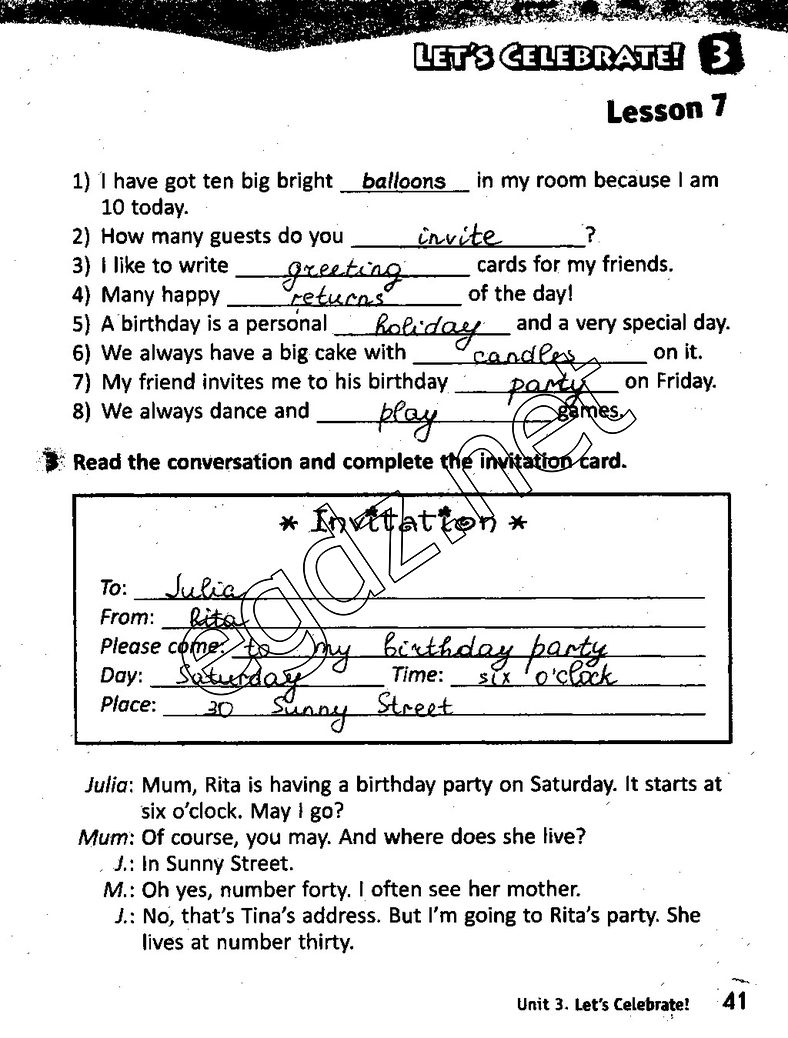 LET'S CELEBRATE! 3
Lesson 7
1) I have got ten big bright balloons in my room because I am
10 today.
2) How many guests do you invite ?
3) I like to write greeting cards for my friends.
4) Many happy returns of the day!
5) A birthday is a personal holiday and a very special day.
6) We always have a big cake with candles on it.
7) My friend invites me to his birthday party on Friday.
8) We always dance and play games.
3 Read the conversation and complete the invitation card.
* Invitation *
To: Julia
From: Rita
Please come: to my birthday party
Day: Saturday Time: six o'clock
Place: 30 Sunny Street
egdz.net
Julia: Mum, Rita is having a birthday party on Saturday. It starts at
six o'clock. May I go?
Mum: Of course, you may. And where does she live?
J.: In Sunny Street.
M.: Oh yes, number forty. I often see her mother.
J.: No, that's Tina's address. But I'm going to Rita's party. She
lives at number thirty.
Unit 3. Let's Celebrate! 41